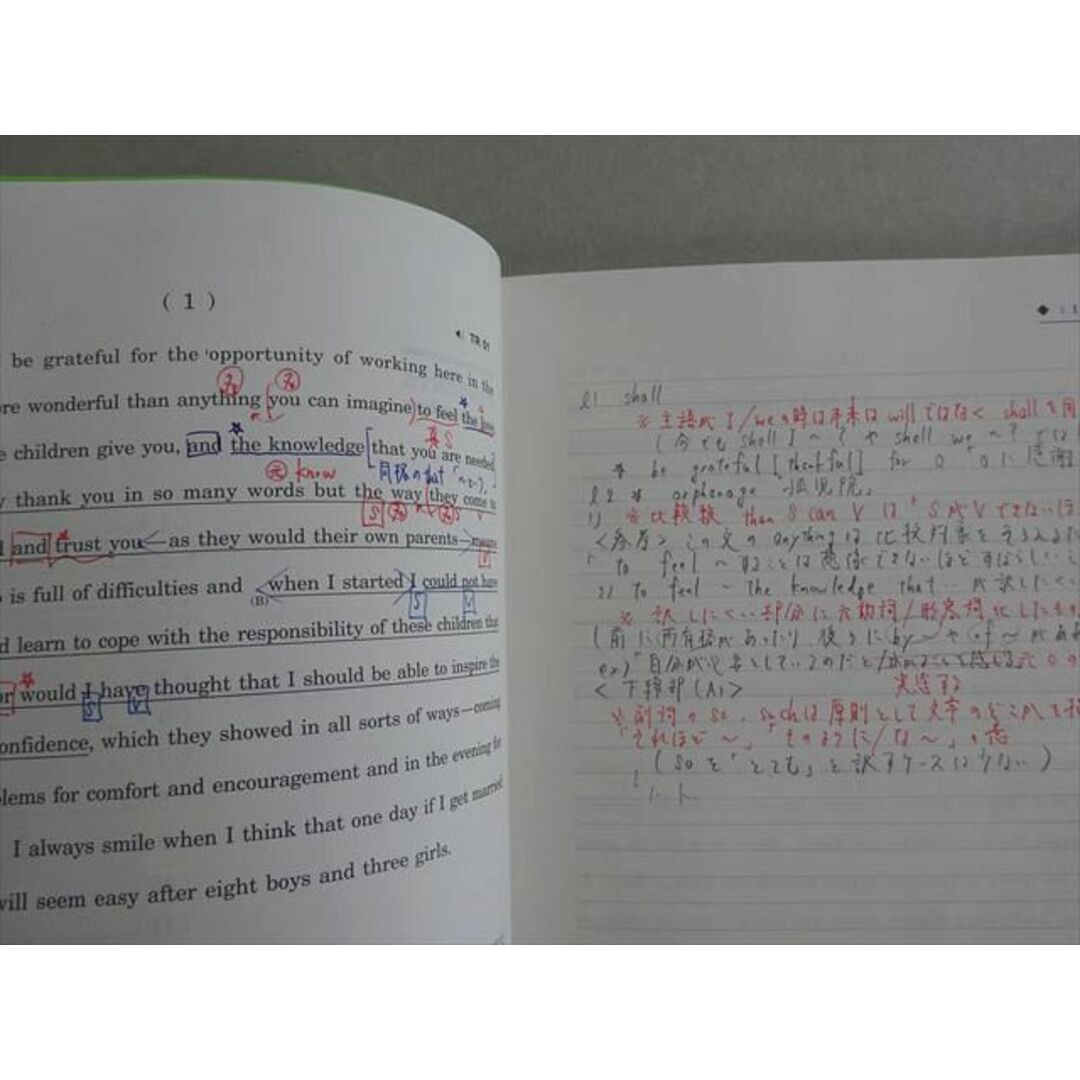 ( 1 )
TR 01
be grateful for the opportunity of working here in the
re wonderful than anything you can imagine to feel the love
e children give you, and the knowledge that you are needed.
know
y thank you in so many words but the way they come to
and trust you as they would their own parents
s is full of difficulties and when I started I could not have
(B)
d learn to cope with the responsibility of these children that
or would I have thought that I should be able to inspire the
S V
onfidence, which they showed in all sorts of ways—coming
blems for comfort and encouragement and in the evening for
I always smile when I think that one day if I get married
will seem easy after eight boys and three girls.
l1 shall
※主語が I/weの時は未来は willではなく shallを用
(今でも shall I ~ ? や shall we ~ ? では
* be grateful [thankful] for O 「Oに感謝
l2 * orphanage 「孤児院」
1) ※比較級 than S can V は 「SがVできないほ
<参考> この文の anything は比較対象を
「to feel ~することは想像できないほどすばらしいこ
2) to feel ~ the knowledge that … が訳しにくい
※訳しにくい部分に元動詞/形容詞化したもの
(前に所有格があったり 後ろにby~やof~があ
ex)「自分が必要としているのだと
実感する
<下線部(A)>
※副詞のso, suchは原則として文中のどこかを指
「それほど~」「そのように/な~」の意
(soを「とても」と訳すケースは少ない)